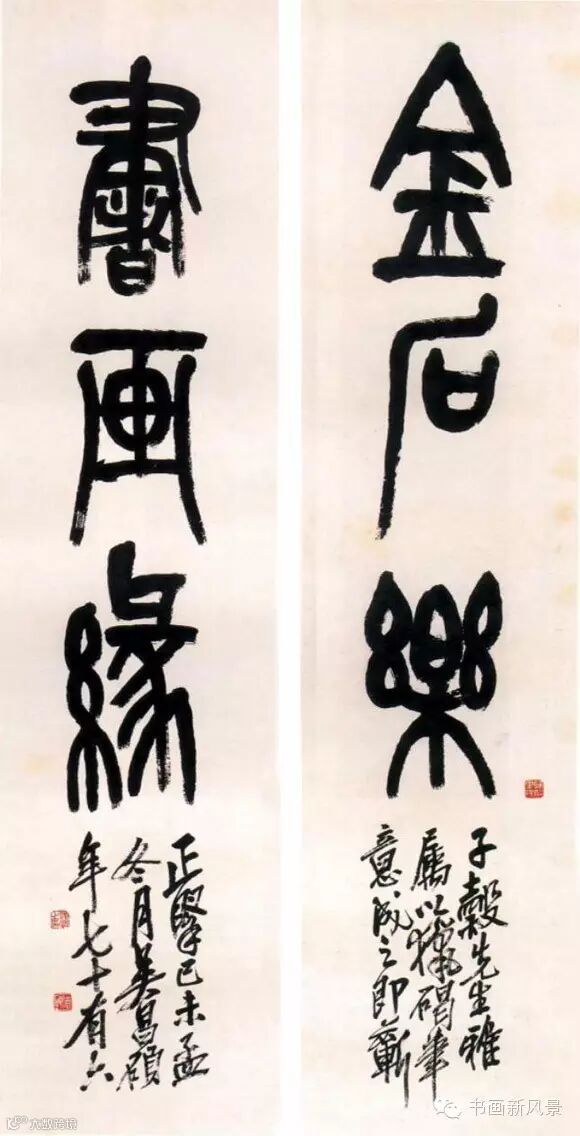 金石樂
子穀先生雅
屬以獵碣筆
意成之即蘄
書画緣
正己未孟
冬月吳昌碩
年七十有六
书画新风景
大数跨境